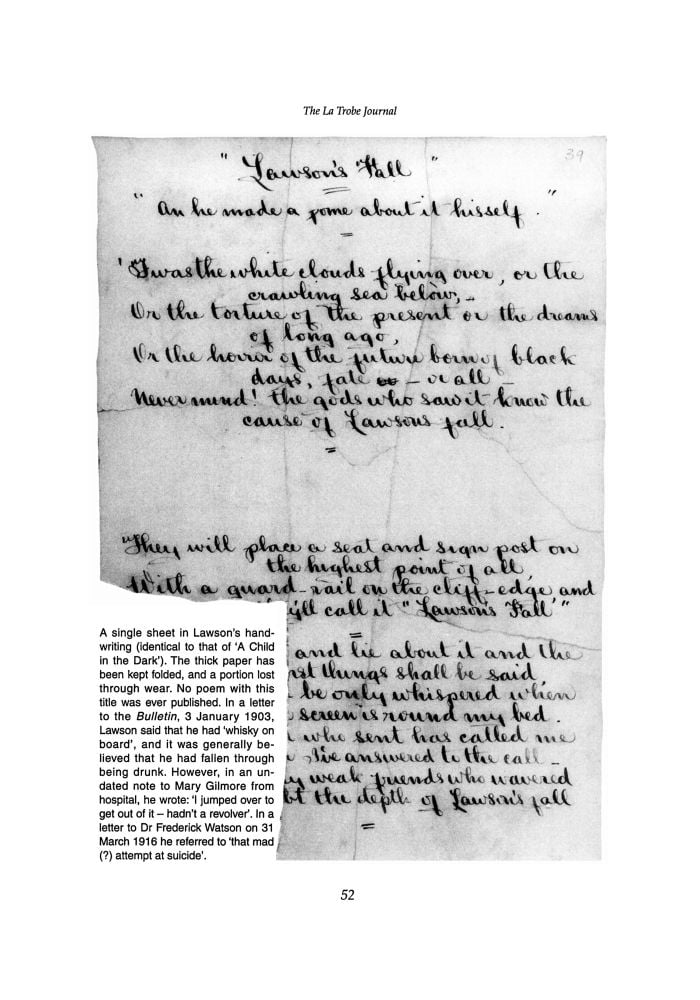 The La Trobe Journal
39
" Lawson's Fall "
" An he made a pome about it hisself . "
' Twas the white clouds flying over, or the
crawling sea below, –
Or the torture of the present or the dreams
of long ago,
Or the horror of the future born of black
days, fate – or all –
Never mind! the gods who saw it know the
cause of Lawsons fall.
"They will place a seat and sign post on
the highest point of all
With a guard-rail on the cliff-edge and
'll call it "Lawson's Fall'"
and lie about it and the
rst things shall be said,
be only whispered when
screen is round my bed.
who sent has called me
I've answered to the call –
weak friends who wavered
bt the depth of Lawson's fall
A single sheet in Lawson's hand-
writing (identical to that of 'A Child
in the Dark'). The thick paper has
been kept folded, and a portion lost
through wear. No poem with this
title was ever published. In a letter
to the Bulletin, 3 January 1903,
Lawson said that he had 'whisky on
board', and it was generally be-
lieved that he had fallen through
being drunk. However, in an un-
dated note to Mary Gilmore from
hospital, he wrote: 'I jumped over to
get out of it – hadn't a revolver'. In a
letter to Dr Frederick Watson on 31
March 1916 he referred to 'that mad
(?) attempt at suicide'.
52